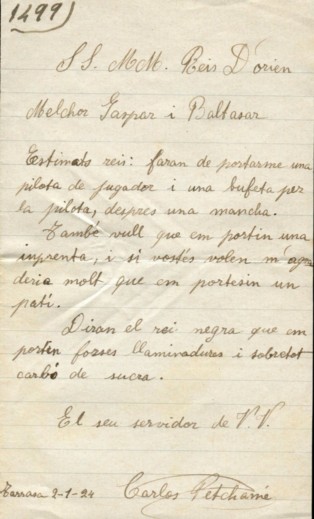 1499)
SS. MM. Reis D'orien
Melchor Gaspar i Baltasar
Estimats reis: faran de portarme una
pilota de jugador i una bufeta per
la pilota, despres una mancha.
També vull que em portin una
inprenta, i si vostés volen m'agra
deria molt que em portesin un
patí.
Diran el rei negra que em
porten forses llaminadures i sobretot
carbó de sucra.
El seu servidor de V.V.
Tarrasa 2-1-24 Carlos Petchamé